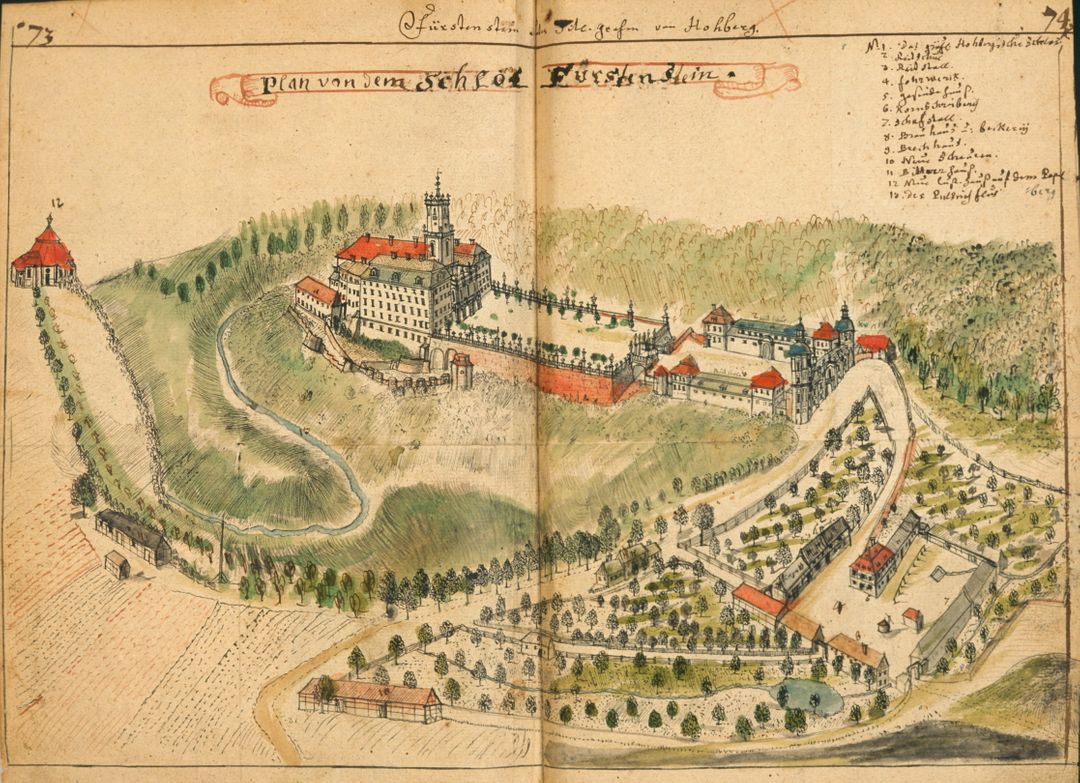 73
Fürstenstein des grafen von Hohberg.
74
Plan von dem Schlos Fürstenstein.
N. 1. Das Hohbergische Schlos
2. Reitschul
3. Reidstall.
4. forwerck.
5. gesindehaus.
6. Kornschreiberey
7. Schafstall.
8. Brauhaus u: beckerij
9. Brechhaus.
10 Neue Scheuren.
11
12 Neue lusthaus auf dem Papl
berg
13. der flus
12